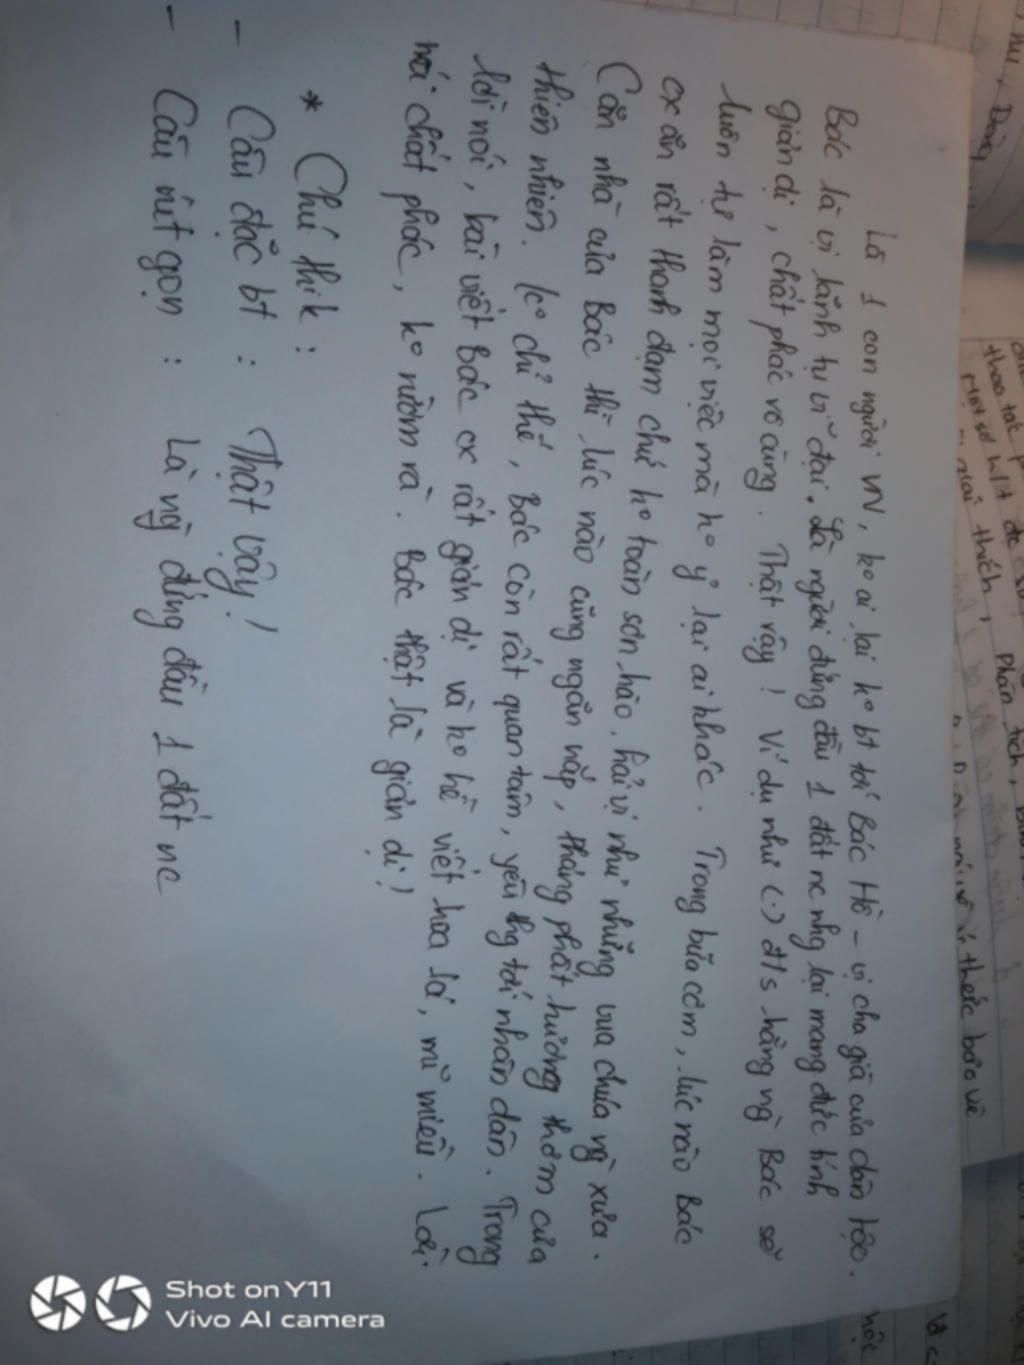 Là 1 con người VN, ko ai lại ko bt tới Bác Hồ - vị cha già của dân tộc.
Bác là vị lãnh tụ vĩ đại. Là người đứng đầu 1 đất nc nhg lại mang đức tính
giản dị, chất phác vô cùng. Thật vậy! Ví dụ như (.) đ/s hằng ng Bác sẽ
luôn tự làm mọi việc mà ko ỷ lại ai khác. Trong bữa cơm, lúc nào Bác
cx ăn rất thanh đạm chứ ko toàn sơn hào, hải vị như những vua chúa ng xưa.
Căn nhà của Bác thì lúc nào cũng ngăn nắp, thoáng phất hương thơm của
thiên nhiên. Ko chỉ thế, Bác còn rất quan tâm, yêu thg tới nhân dân. Trong
lời nói, bài viết Bác cx rất giản dị và ko hề viết hoa lá, mĩ miều. Lời
nói chất phác, ko rườm rà. Bác thật là giản dị!
* Chú thik:
- Câu đặc bt: Thật vậy!
- Câu rút gọn: Là ng đứng đầu 1 đất nc
thao tác
giải thích, phân tích,
thức bảo vệ
học
Shot on Y11
Vivo AI camera